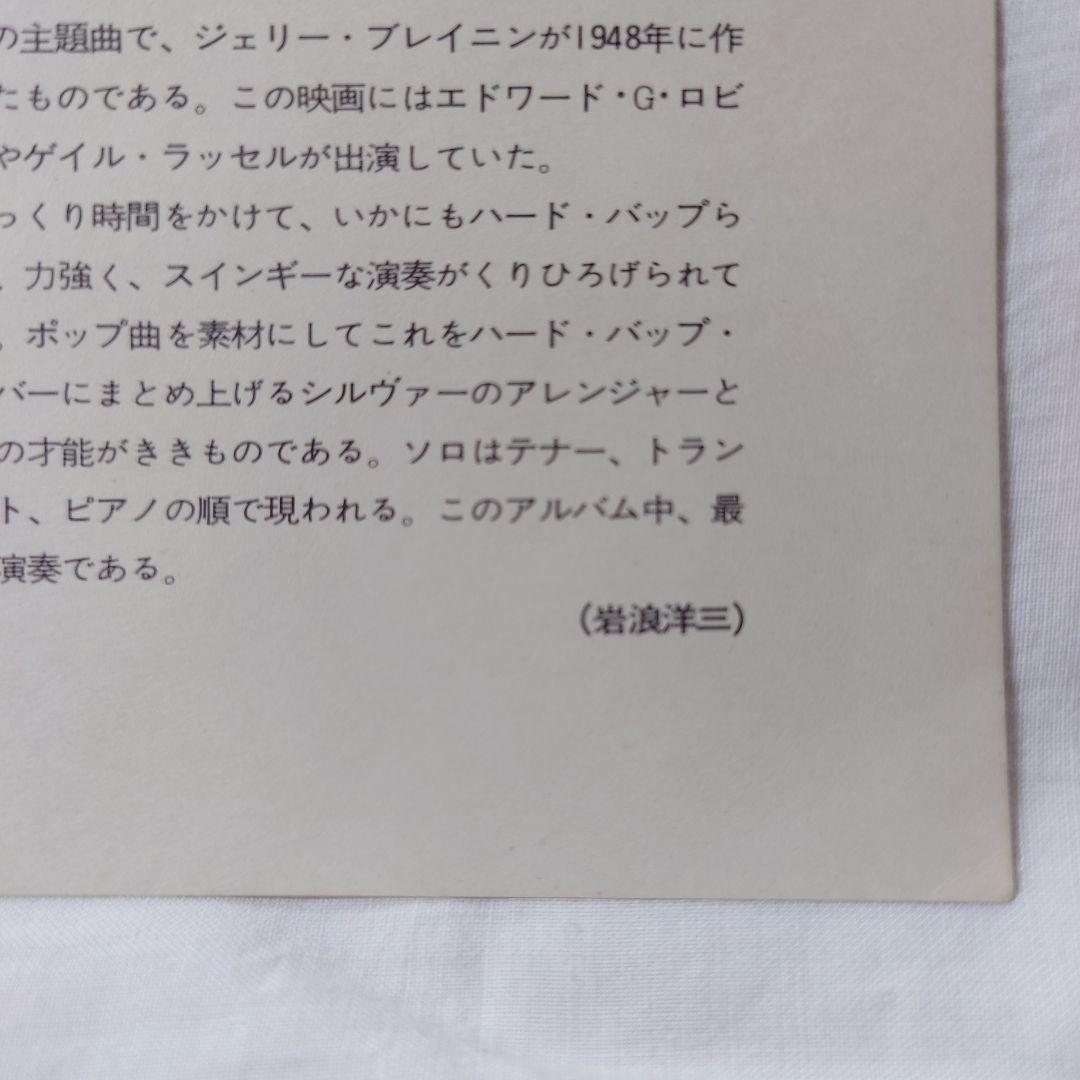 の主題曲で、ジェリー・ブレイニンが1948年に作
たものである。この映画にはエドワード・G・ロビ
やゲイル・ラッセルが出演していた。
っくり時間をかけて、いかにもハード・バップら
、力強く、スインギーな演奏がくりひろげられて
。ポップ曲を素材にしてこれをハード・バップ・
バーにまとめ上げるシルヴァーのアレンジャーと
の才能がききものである。ソロはテナー、トラン
ト、ピアノの順で現われる。このアルバム中、最
演奏である。
(岩浪洋三)